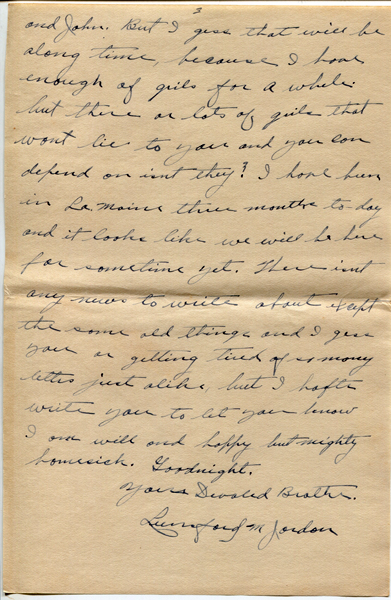 3
and John. But I gess that will be
along time, because I have
enough of girls for a while.
but there or lots of girls that
wont lie to you and you can
depend on isnt they? I have been
in La. Maine three months to-day
and it looks like we will be here
for sometime yet. There isnt
any news to write about except
the same old things and I gess
you or getting tired of so many
letters just alike, but I hafto
write you to let you know
I am well and happy but mighty
homesick. Goodnight.
Your Devoted Brother.
Lunsford M Jordan